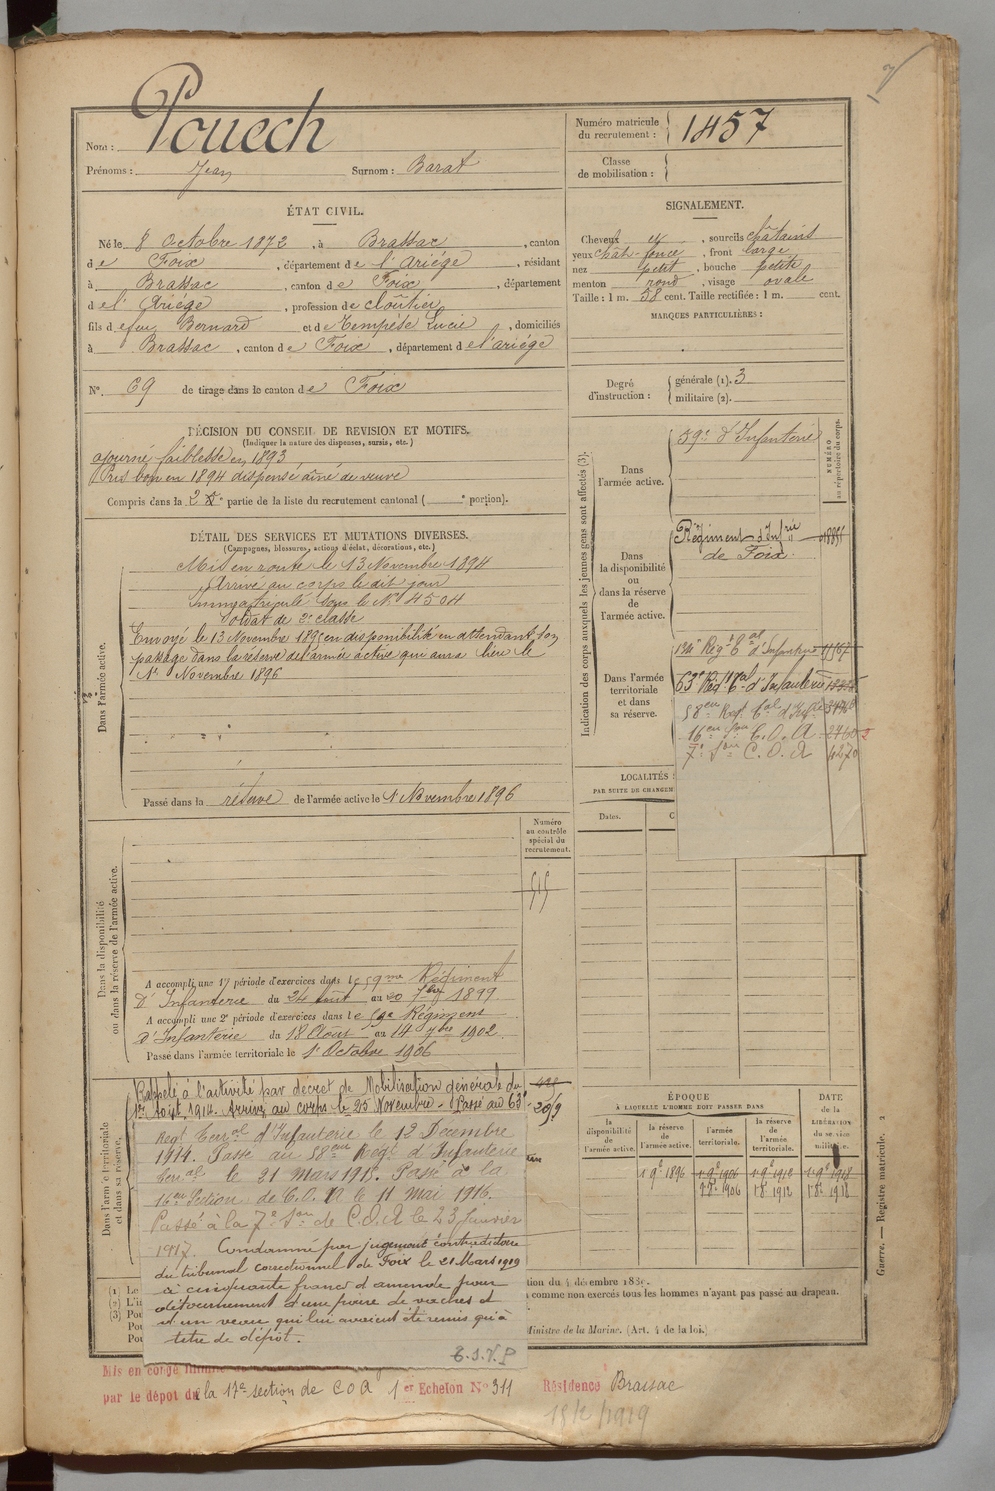 7
Nom : Pouech
Prénoms : Jean Surnom : Barat
Numéro matricule
du recrutement : 1457
Classe
de mobilisation :
ÉTAT CIVIL.
Né le 8 Octobre 1872, à Brassac, canton
de Foix, département de l'Ariége, résidant
à Brassac, canton de Foix, département
de l'Ariége, profession de cloûtier
fils de feu Bernard et de Tempésé Lucie, domiciliés
à Brassac, canton de Foix, département de l'ariége
N° 69 de tirage dans le canton de Foix
SIGNALEMENT.
Cheveux et, sourcils châtains
yeux chât-foncé, front large
nez petit, bouche petite
menton rond, visage ovale
Taille : 1 m. 58 cent. Taille rectifiée : 1 m. cent.
MARQUES PARTICULIÈRES :
Degré
d'instruction :
générale (1). 3
militaire (2).
DÉCISION DU CONSEIL DE REVISION ET MOTIFS.
(Indiquer la nature des dispenses, sursis, etc.)
ajourné faiblesse en 1893
Pris bon en 1894 dispensé ainé de veuve
Compris dans la 2e partie de la liste du recrutement cantonal ( e portion).
DÉTAIL DES SERVICES ET MUTATIONS DIVERSES.
(Campagnes, blessures, actions d'éclat, décorations, etc.)
Dans l'armée active.
Mis en route le 13 Novembre 1894
Arrivé au corps le dit jour
Immatriculé sous le N° 4504
Soldat de 2e classe
Envoyé le 13 Novembre 1895 en disponibilité en attendant son
passage dans la réserve de l'armée active qui aura lieu le
1r Novembre 1896
Passé dans la réserve de l'armée active le 1r Novembre 1896
Indication des corps auxquels les jeunes gens sont affectés (3).
NUMÉRO
au répertoire du corps.
Dans
l'armée active.
59e d'Infanterie
Dans
la disponibilité
ou
dans la réserve
de
l'armée active.
Régiment d'Infrie
de Foix
Dans l'armée
territoriale
et dans
sa réserve.
134e Regt tal d'Infanterie
63e Regt tal d'Infanterie
58eme Regt tal d'Infie
16eme Son C.O.A
7e Son C.O.A 4270
LOCALITÉS
PAR SUITE DE CHANGEM
Dates.
Numéro
au contrôle
spécial du
recrutement.
515
Dans la disponibilité
ou dans la réserve de l'armée active.
A accompli une 1re période d'exercices dans le 59me Régiment
D'Infanterie du 24 Août au 20 7bre 1899
A accompli une 2e période d'exercices dans le 59e Régiment
d'Infanterie du 18 Août au 14 7bre 1902
Passé dans l'armée territoriale le 1r Octobre 1906
Dans l'armée territoriale
et dans sa réserve.
Rappelé à l'activité par décret de Mobilisation générale du
1er Août 1914. Arrivé au corps le 25 Novembre - Passé au 63e
Regt Terral d'Infanterie le 12 Décembre
1914. Passé au 58eme Regt d'Infanterie
Terral le 21 Mars 1915. Passé à la
16eme Section de C.O.A le 11 Mai 1916.
Passé à la 7e Son de C.O.A le 23 Janvier
1917. Condamné par jugement contradictoire
du tribunal correctionnel de Foix le 21 Mars 1919
à cinquante francs d'amende pour
détournement d'une paire de vaches et
d'un veau qui lui avaient été remis qu'à
titre de dépôt.
E.S.V.P
ÉPOQUE
À LAQUELLE L'HOMME DOIT PASSER DANS
la
disponibilité
de
l'armée active.
la réserve
de
l'armée active.
l'armée
territoriale.
la réserve
de
l'armée
territoriale.
DATE
de la
LIBÉRATION
du service
militaire.
1 9e 1896 1 9e 1906 1 9e 1912 1 9e 1918
1r 8e 1906 1r 8e 1912 1r 8e 1918
(1) Le
(2) L'in
(3) Pou
Pou
Pou
tion du 4 décembre 1889.
comme non exercés tous les hommes n'ayant pas passé au drapeau.
Ministre de la Marine. (Art. 4 de la loi.)
Guerre. — Registre matricule. 2
Mis en congé illimité
par le dépôt de la 17e section de COA 1er Echelon N° 311 Résidence Brassac